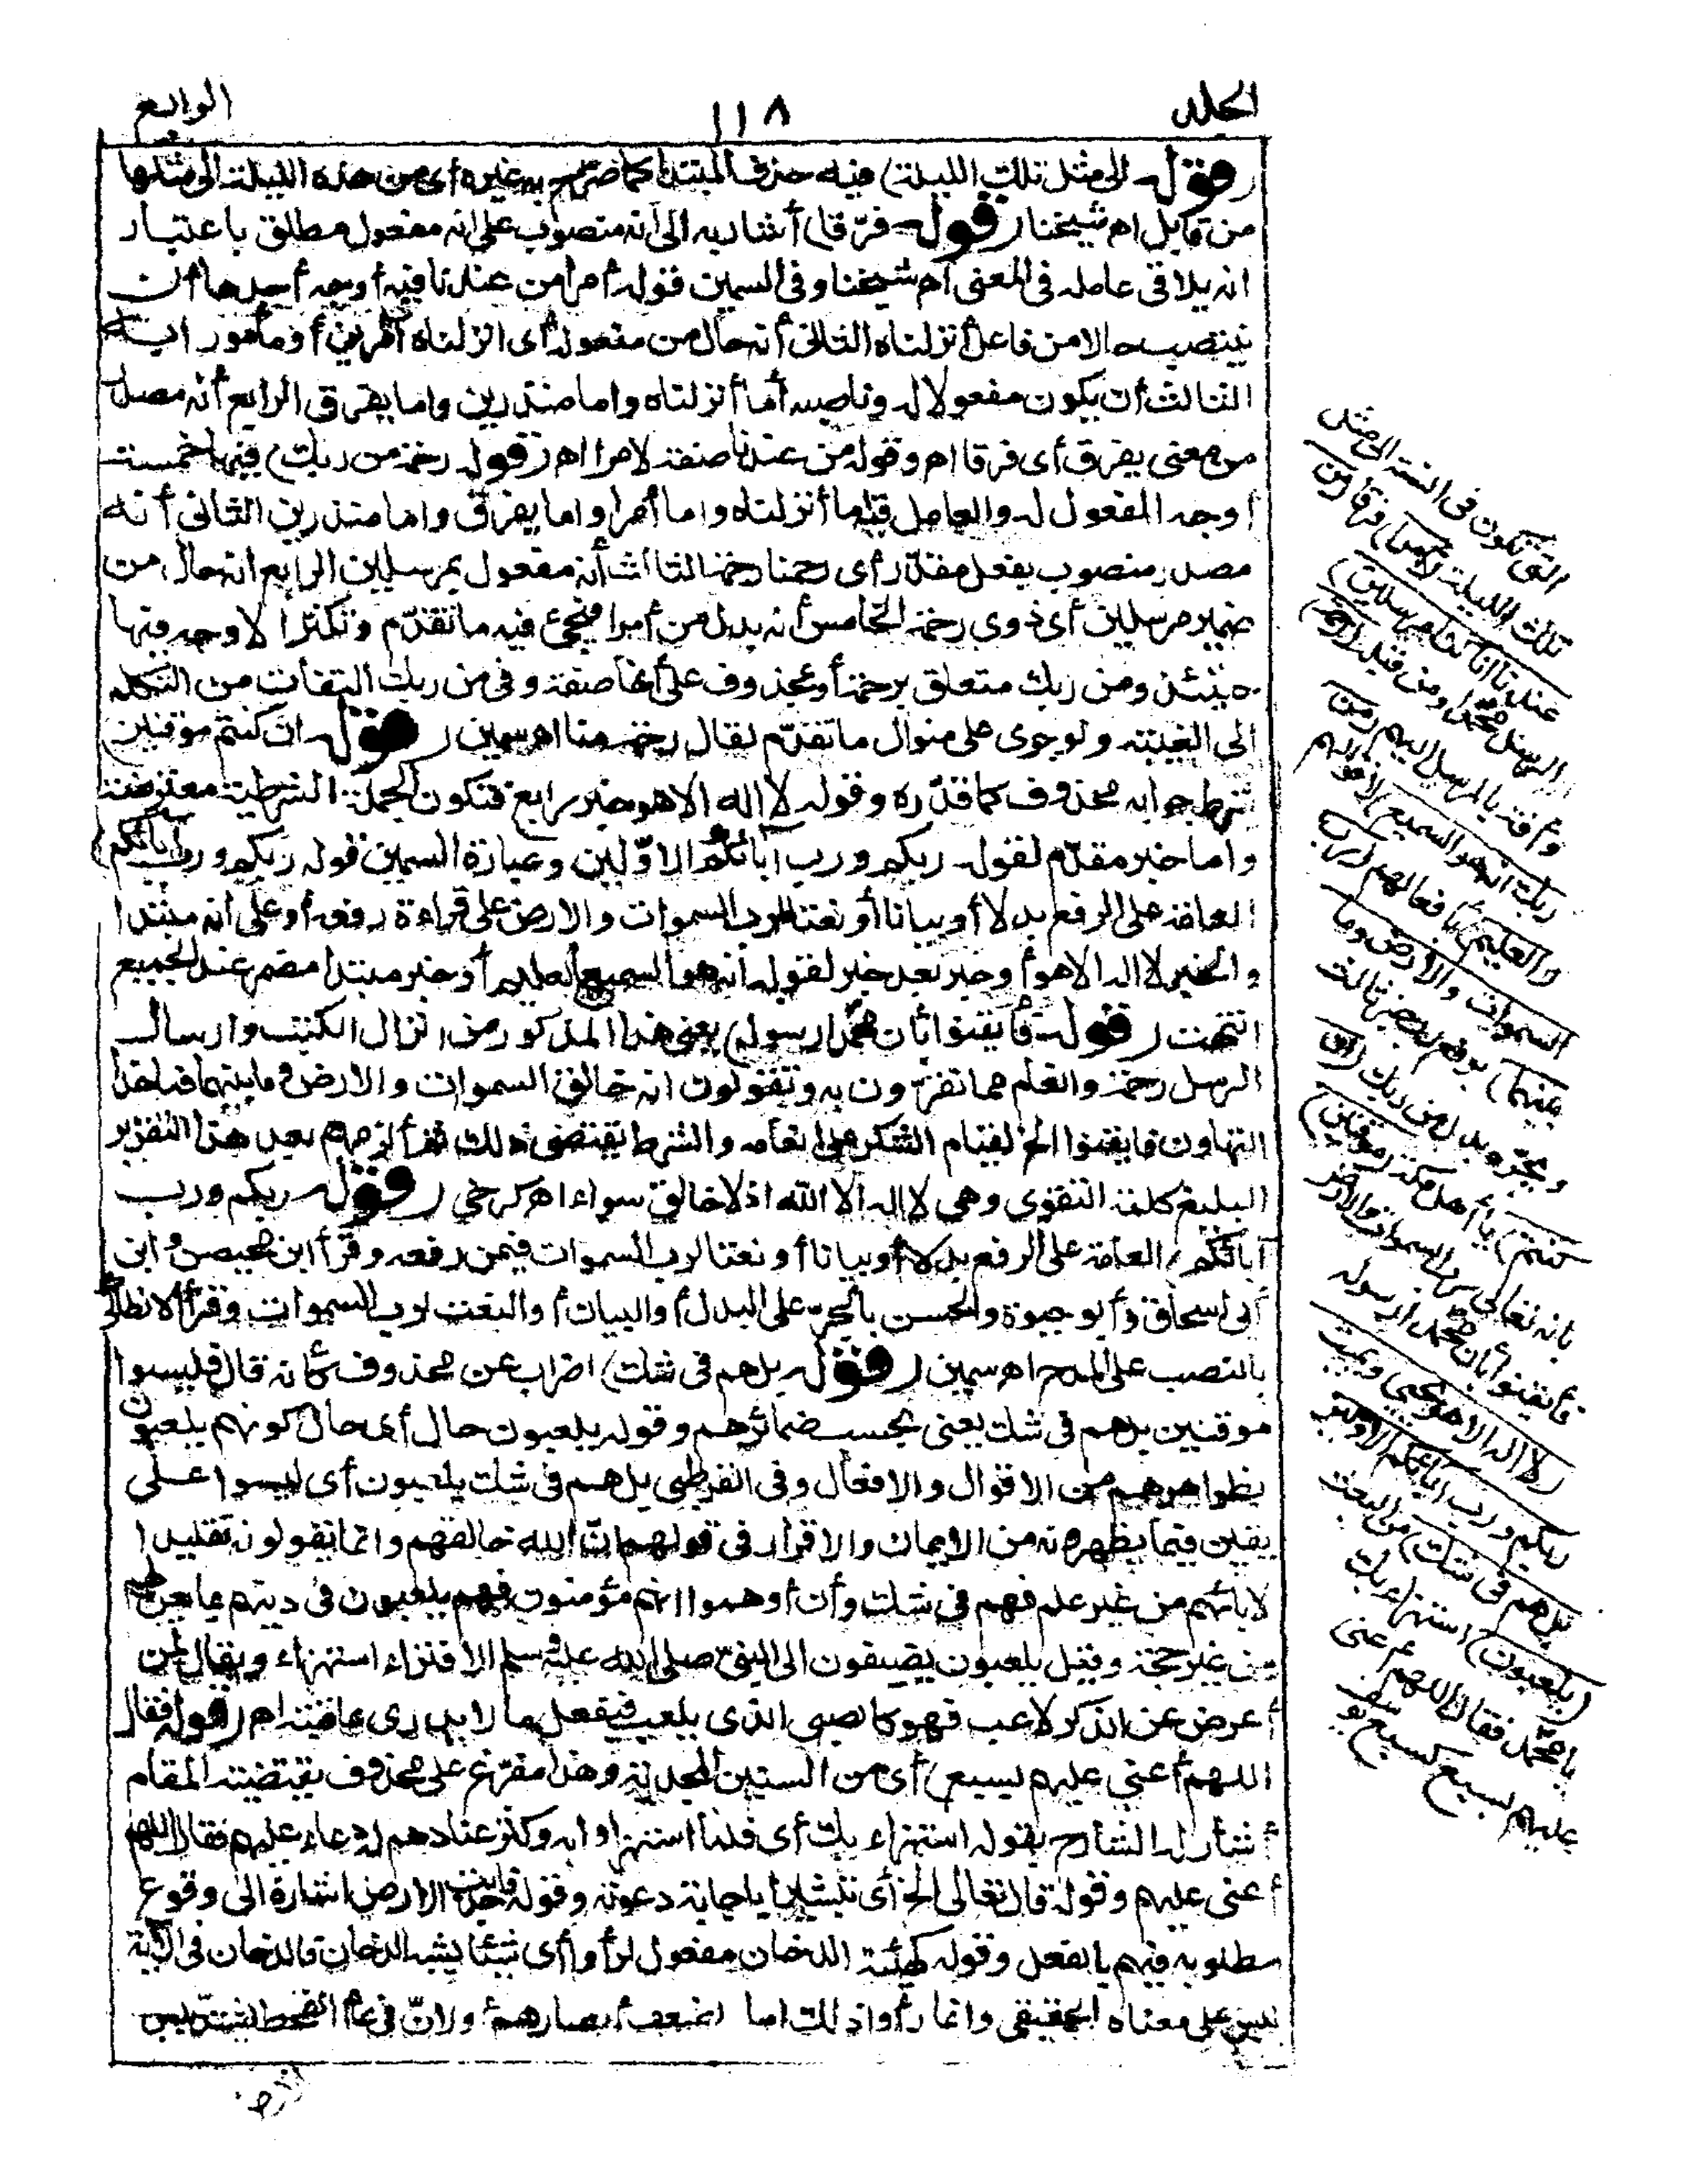 الجلد
١١٨
الرابع
(قوله الى مثل تلك الليلة) فيه حذف المبتدا كما صرّح به غيره أى من هذه الليلة الى مثلها
من قابل اه شيخنا (قوله فرقا) أشار به الى أنه منصوب على انه مفعول مطلق باعتبار
انه يلاقى عامله فى المعنى اه شيخنا وفى السمين قوله أمرا من عندنا فيه أوجه أحدها أن
ينتصب حالا من فاعل أنزلناه الثانى أنه حال من مفعوله أى انزلناه آمرين أو مأمورا به
الثالث أن يكون مفعولا له وناصبه أما أنزلناه واما منذرين واما يفرق الرابع أنه مصدر
من معنى يفرق أى فرقا اه وقوله من عندنا صفة لامرا اه (قوله رحمة من ربك) فيها خمسة
أوجه المفعول له والعامل فيه اما أنزلناه واما أمرا واما يفرق واما منذرين الثانى أنه
مصدر منصوب بفعل مقدّر أى رحمنا رحمة الثالث أنه مفعول بمرسلين الرابع انه حال من
ضمير مرسلين أى ذوى رحمة الخامس أنه بدل من أمرا فيجئ فيه ما تقدّم وتكثر الاوجه فيها
حينئذ ومن ربك متعلق برحمة أو بمحذوف على أنها صفة وفى من ربك التفات من التكلم
الى الغيبة ولو جرى على منوال ما تقدّم لقال رحمة منا اه سمين (قوله ان كنتم موقنين)
شرط جوابه محذوف كما قدّره وقوله لا اله الا هو خبر رابع فتكون الجملة الشرطية معترضة
واما خبر مقدّم لقوله ربكم ورب آبائكم الاوّلين وعبارة السمين قوله ربكم ورب آبائكم
العامة على الرفع بدلا أو بيانا أو نعتا لرب السموات والارض على قراءة رفعه أو على أنه مبتدا
والخبر لا اله الا هو أو خبر بعد خبر لقوله انه هو السميع العليم أو خبر مبتدا مضمر عند الجميع
انتهت (قوله فأيقنوا بأن محمدا رسوله) يعنى هذا المذكور من انزال الكتب وارسال
الرسل رحمة والعلم مما تقرّون به وتقولون انه خالق السموات والارض وما بينهما فما هذا
التهاون فايقنوا الخ لقيام الشكر على انعامه والشرط يقتضى ذلك ثم ألزمهم بعد هذا التقرير
البليغ كلمة التقوى وهى لا اله الا الله اذ لا خالق سواه اه كرخى (قوله ربكم ورب
آبائكم) العامة على الرفع بدلا أو بيانا أو نعتا لرب السموات فيمن رفعه وقرأ ابن محيصن وابن
أبى اسحاق وأبو حيوة والحسن بالجر على البدل أو البيان أو النعت لرب السموات وقرأ الانطاكى
بالنصب على المدح اه سمين (قوله بل هم فى شك) اضراب عن محذوف كأنه قال فليسوا
موقنين بل هم فى شك يعنى بحسب ضمائرهم وقوله يلعبون حال أى حال كونهم يلعبون
بظواهرهم من الاقوال والافعال وفى القرطبى بل هم فى شك يلعبون أى ليسوا على
يقين فيما يظهرونه من الايمان والاقرار فى قولهم ان الله خالقهم وانما يقولونه تقليدا
لابائهم من غير علم فهم فى شك وأن أوهموا انهم مؤمنون فهم يلعبون فى دينهم بما يعن لهم
من غير حجة وقيل يلعبون يضيفون الى النبى صلى الله عليه وسلم الافتراء استهزاء ويقال لمن
أعرض عن الذكر لاعب فهو كالصبى الذى يلعب فيفعل ما لا يدرى عاقبته اه (قوله فقال
اللهم أعنى عليهم بسبع) أى من السنين المجدبة وهذا مفرّع على محذوف يقتضيه المقام
أشار له الشارح بقوله استهزاء بك أى فلما استهزاوا به وكثر عنادهم له دعا عليهم فقال اللهم
أعنى عليهم وقوله قال تعالى الخ أى تبشيرا باجابة دعوته وقوله فأجدبت الارض اشارة الى وقوع
مطلوبه فيهم بالفعل وقوله كهيئة الدخان مفعول لرأوا أى شيئا يشبه الدخان فالدخان فى الآية
ليس على معناه الحقيقى وانما رأوا ذلك اما لضعف أبصارهم أو لانّ فى عام القحط يشتد يبس
التى تكون فى السنة الى مثل
تلك الليلة (أمرا) فرقا (من
عندنا انا كنا مرسلين)
الرسل محمدا ومن قبله (رحمة)
رأفة بالمرسل اليهم (من
ربك انه هو السميع) لاقوالهم
(العليم) بأفعالهم (رب
السموات والارض وما
بينهما) برفع رب خبر ثالث
وبجره بدل من ربك (ان
كنتم) يا أهل مكة (موقنين)
بأنه تعالى رب السموات والارض
فأيقنوا بأن محمدا رسوله
(لا اله الا هو يحيى ويميت
ربكم ورب آبائكم الاولين
بل هم فى شك) من البعث
(يلعبون) استهزاء بك
يا محمد فقال اللهم أعنى
عليهم بسبع كسبع يوسف